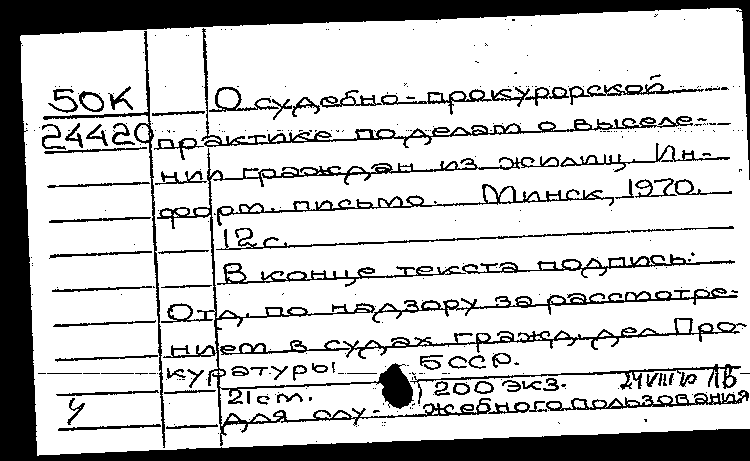 50К О судебно-прокурорской
24420 практике по делам о выселе-
нии граждан из жилищ. Ин-
форм. письмо. Минск, 1970.
12 с.
В конце текста подпись:
Отд. по надзору за рассмотре-
нием в судах гражд. дел Про-
куратуры БССР.
21 cm. 200 экз. 24 VIII 70
у для слу- жебного пользования